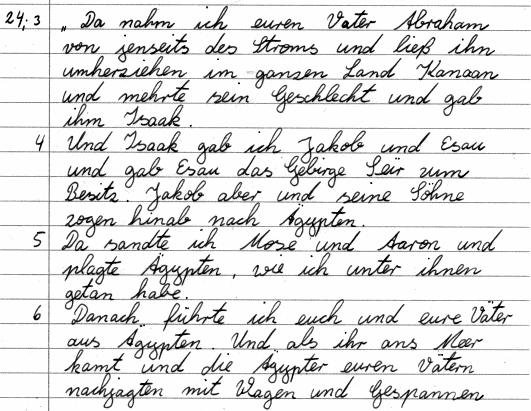 24; 3 „Da nahm ich euren Vater Abraham
von jenseits des Stroms und ließ ihn
umherziehen im ganzen Land Kanaan
und mehrte sein Geschlecht und gab
ihm Isaak.
4 Und Isaak gab ich Jakob und Esau
und gab Esau das Gebirge Seïr zum
Besitz. Jakob aber und seine Söhne
zogen hinab nach Ägypten.
5 Da sandte ich Mose und Aaron und
plagte Ägypten, wie ich unter ihnen
getan habe.
6 Danach führte ich euch und eure Väter
aus Ägypten. Und als ihr ans Meer
kamt und die Ägypter euren Vätern
nachjagten mit Wagen und Gespannen